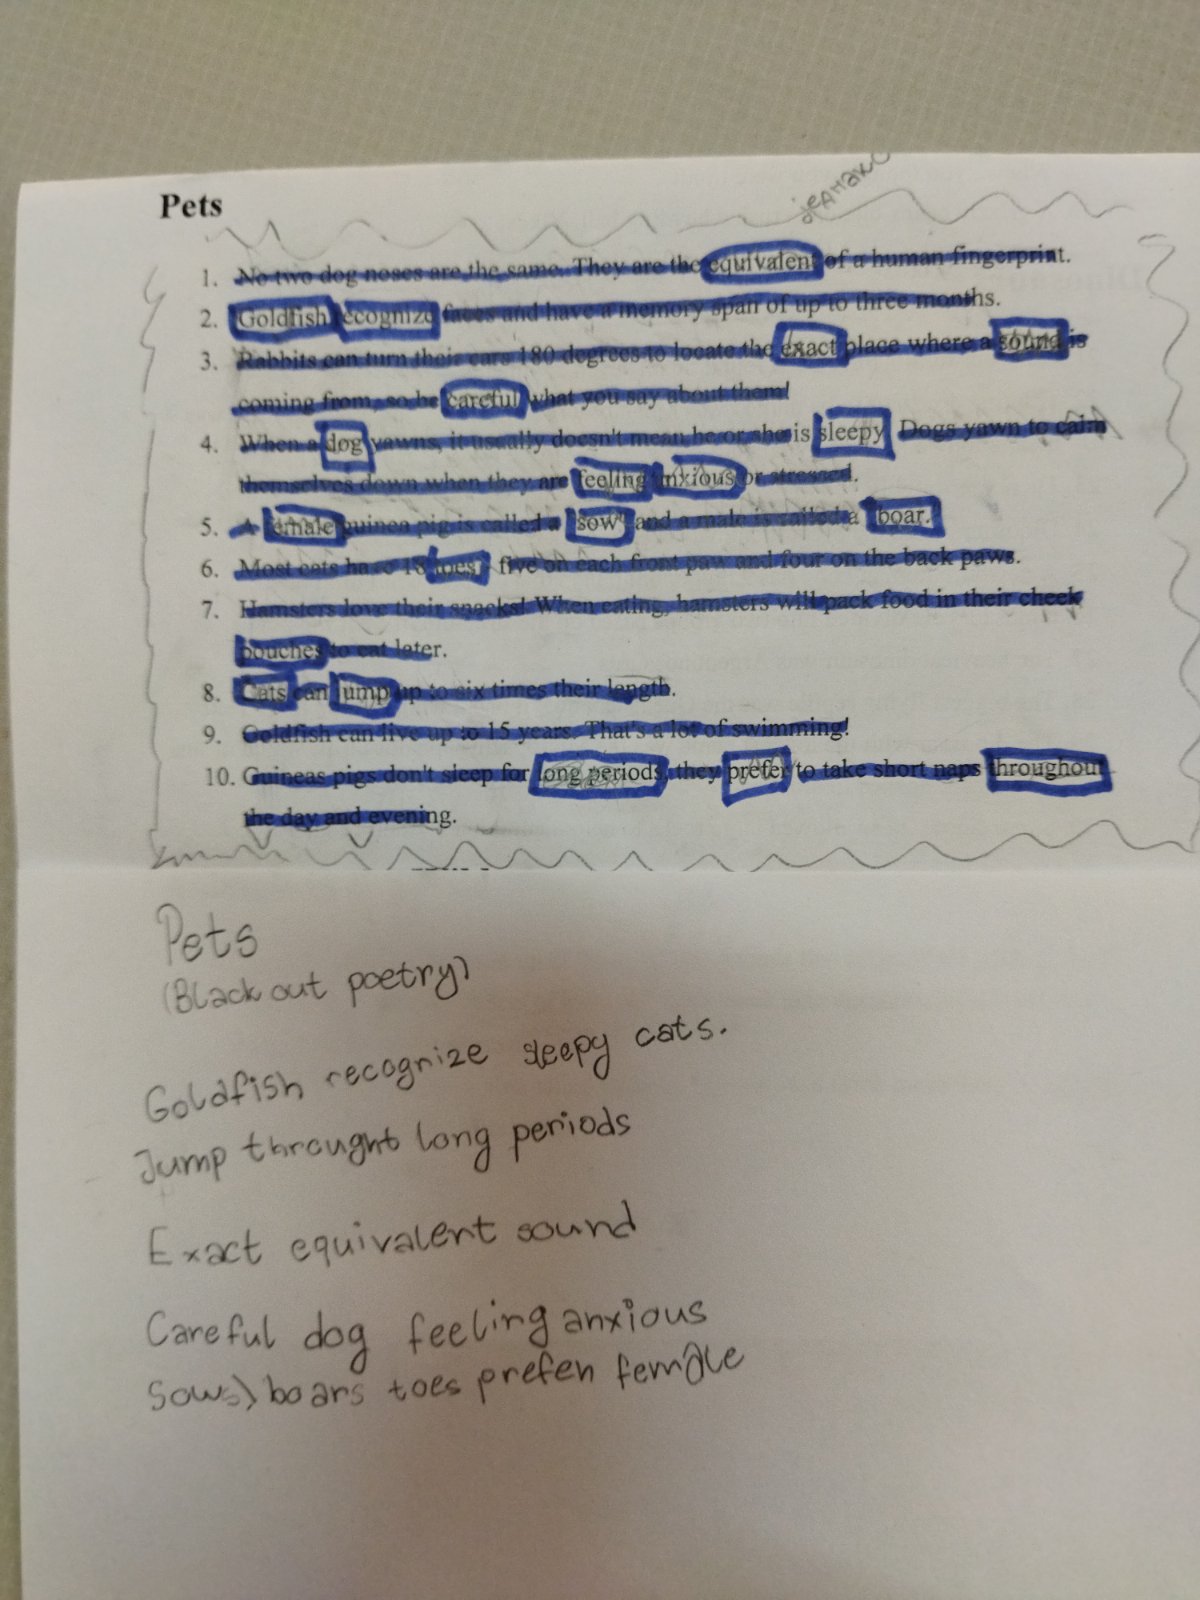 Pets
једнако
1. No two dog noses are the same. They are the equivalent of a human fingerprint.
2. Goldfish recognize faces and have a memory span of up to three months.
3. Rabbits can turn their ears 180 degrees to locate the exact place where a sound is
coming from, so be careful what you say about them!
4. When a dog yawns, it usually doesn't mean he or she is sleepy. Dogs yawn to calm
themselves down when they are feeling anxious or stressed.
5. A female guinea pig is called a "sow" and a male is called a "boar."
6. Most cats have 18 toes, five on each front paw and four on the back paws.
7. Hamsters love their snacks! When eating, hamsters will pack food in their cheek
pouches to eat later.
8. Cats can jump up to six times their length.
9. Goldfish can live up to 15 years. That's a lot of swimming!
10. Guineas pigs don't sleep for long periods, they prefer to take short naps throughout
the day and evening.
Pets
(Black out poetry)
Goldfish recognize sleepy cats.
Jump throught long periods
Exact equivalent sound
Careful dog feeling anxious
Sows) boars toes prefer female